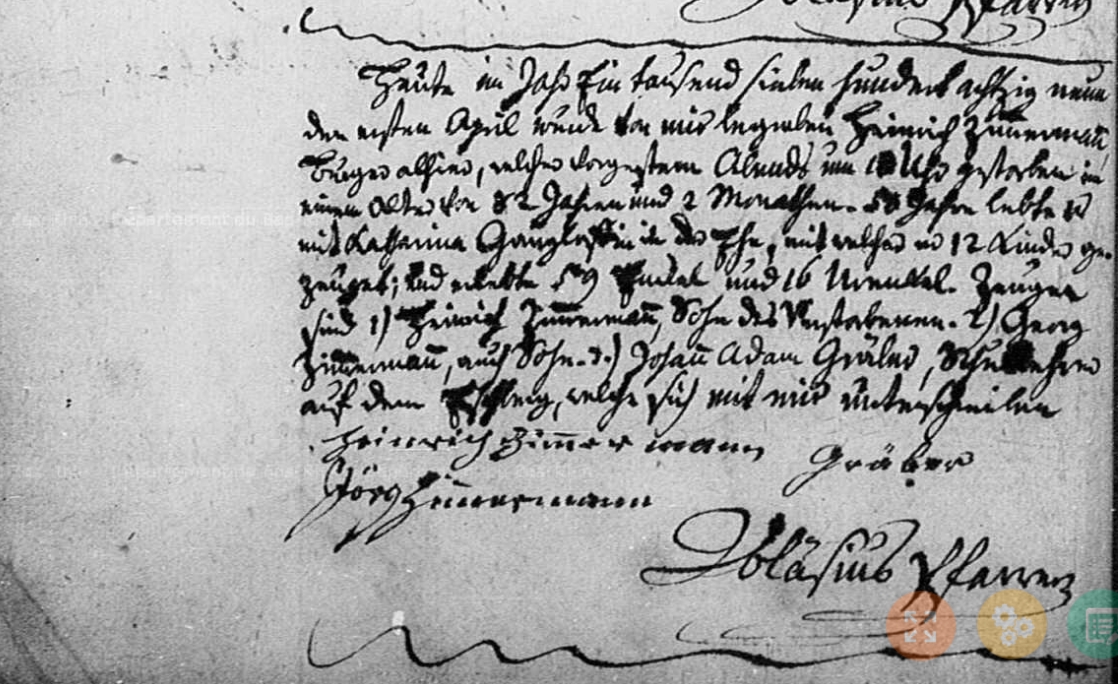 Blasius Pfarrer
Heute im Jahr Ein tausend sieben hundert achtzig neun
den ersten April wurde von mir begraben Heinrich Zim̅erman̅
Burger alhier, welcher vorgestern Abends um Uhr gestorben in
einem Alter von 82 Jahren und 2 Monathen. 58 Jahre lebte er
mit Katharina in der Ehe, mit welcher er 12 Kinder ge-
zeuget; und erlebte 59 Enkel und 16 Urenkel. Zeugen
sind 1) Heinrich Zim̅erman̅, Sohn des Verstorbenen. 2) Georg
Zim̅erman̅, auch Sohn. 3.) Johan̅ Adam Gräber, Schullehrer
auf dem, welche sich mit mir unterschreiben
Heinrich Zim̅ermann Gräber
Jörg Zimmermann
Bläsius Pfarrer